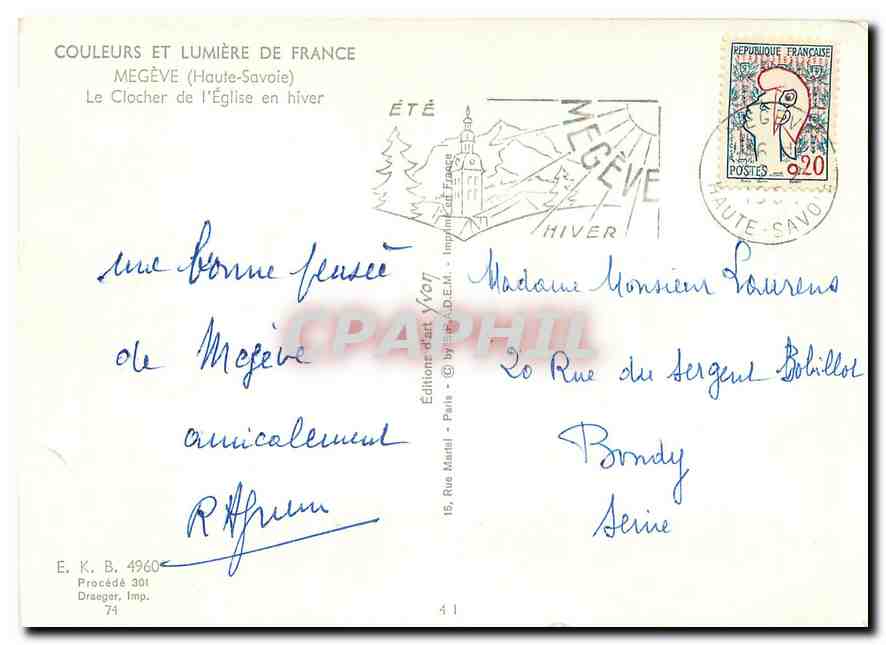 COULEURS ET LUMIÈRE DE FRANCE
MEGÈVE (Haute-Savoie)
Le Clocher de l'Église en hiver
ÉTÉ
MEGÈVE
HIVER
RÉPUBLIQUE FRANÇAISE
POSTES
0,20
MEGÈVE
HAUTE-SAVOIE
une bonne pensée
de Megève
amicalement
Madame Monsieur Laurens
20 Rue du Sergent Bobillot
Bondy
Seine
15, Rue Martel - Paris - © by S.P.A.D.E.M. - Imprimé en France
Éditions d'art Yvon
CPAPHIL
E. K. B. 4960
Procédé 301
Draeger, Imp.
74
41